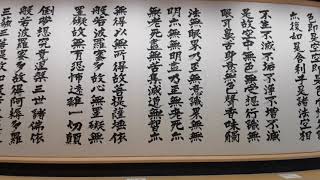 色即是空空即是色
亦復如是舍利子是諸法空相
不生不滅不垢不淨不增不減
是故空中無色無受想行識無
眼耳鼻舌身意無色聲香味觸
法無眼界乃至無意識界無無
明亦無無明盡乃至無老死亦
無老死盡無苦集滅道無智亦
無得以無所得故菩提薩埵依
般若波羅蜜多故心無罣礙無
罣礙故無有恐怖遠離一切顛
倒夢想究竟涅槃三世諸佛依
般若波羅蜜多故得阿耨多羅
三藐三菩提故知